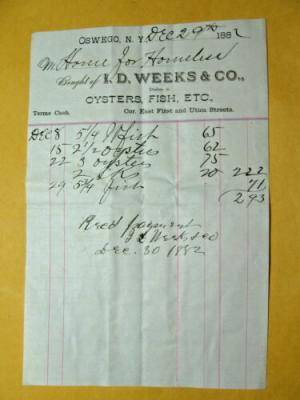 OSWEGO, N. Y. Dec 29th 1882
M Home for Homeless
Bought of I. D. WEEKS & CO.,
Dealers in
OYSTERS, FISH, ETC.,
Terms Cash. Cor. East First and Utica Streets.
Dec 8 5/9 fish 65
15 2 1/2 oysters 62
22 3 oysters 75
2 20 222
29 fish 71
293
Recd payment
I D Weeks & co
Dec. 30 1882